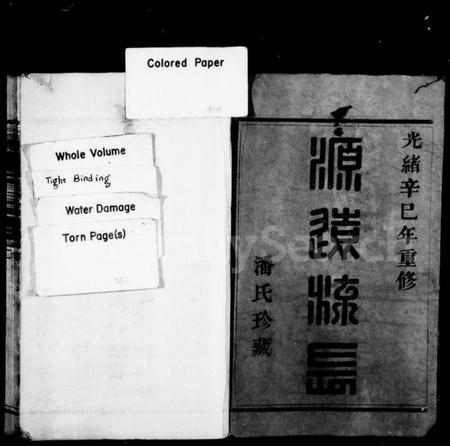 Colored Paper
Whole Volume
Tight Binding
Water Damage
Torn Page(s)
光緒辛巳年重修
源遠流長
潘氏珍藏